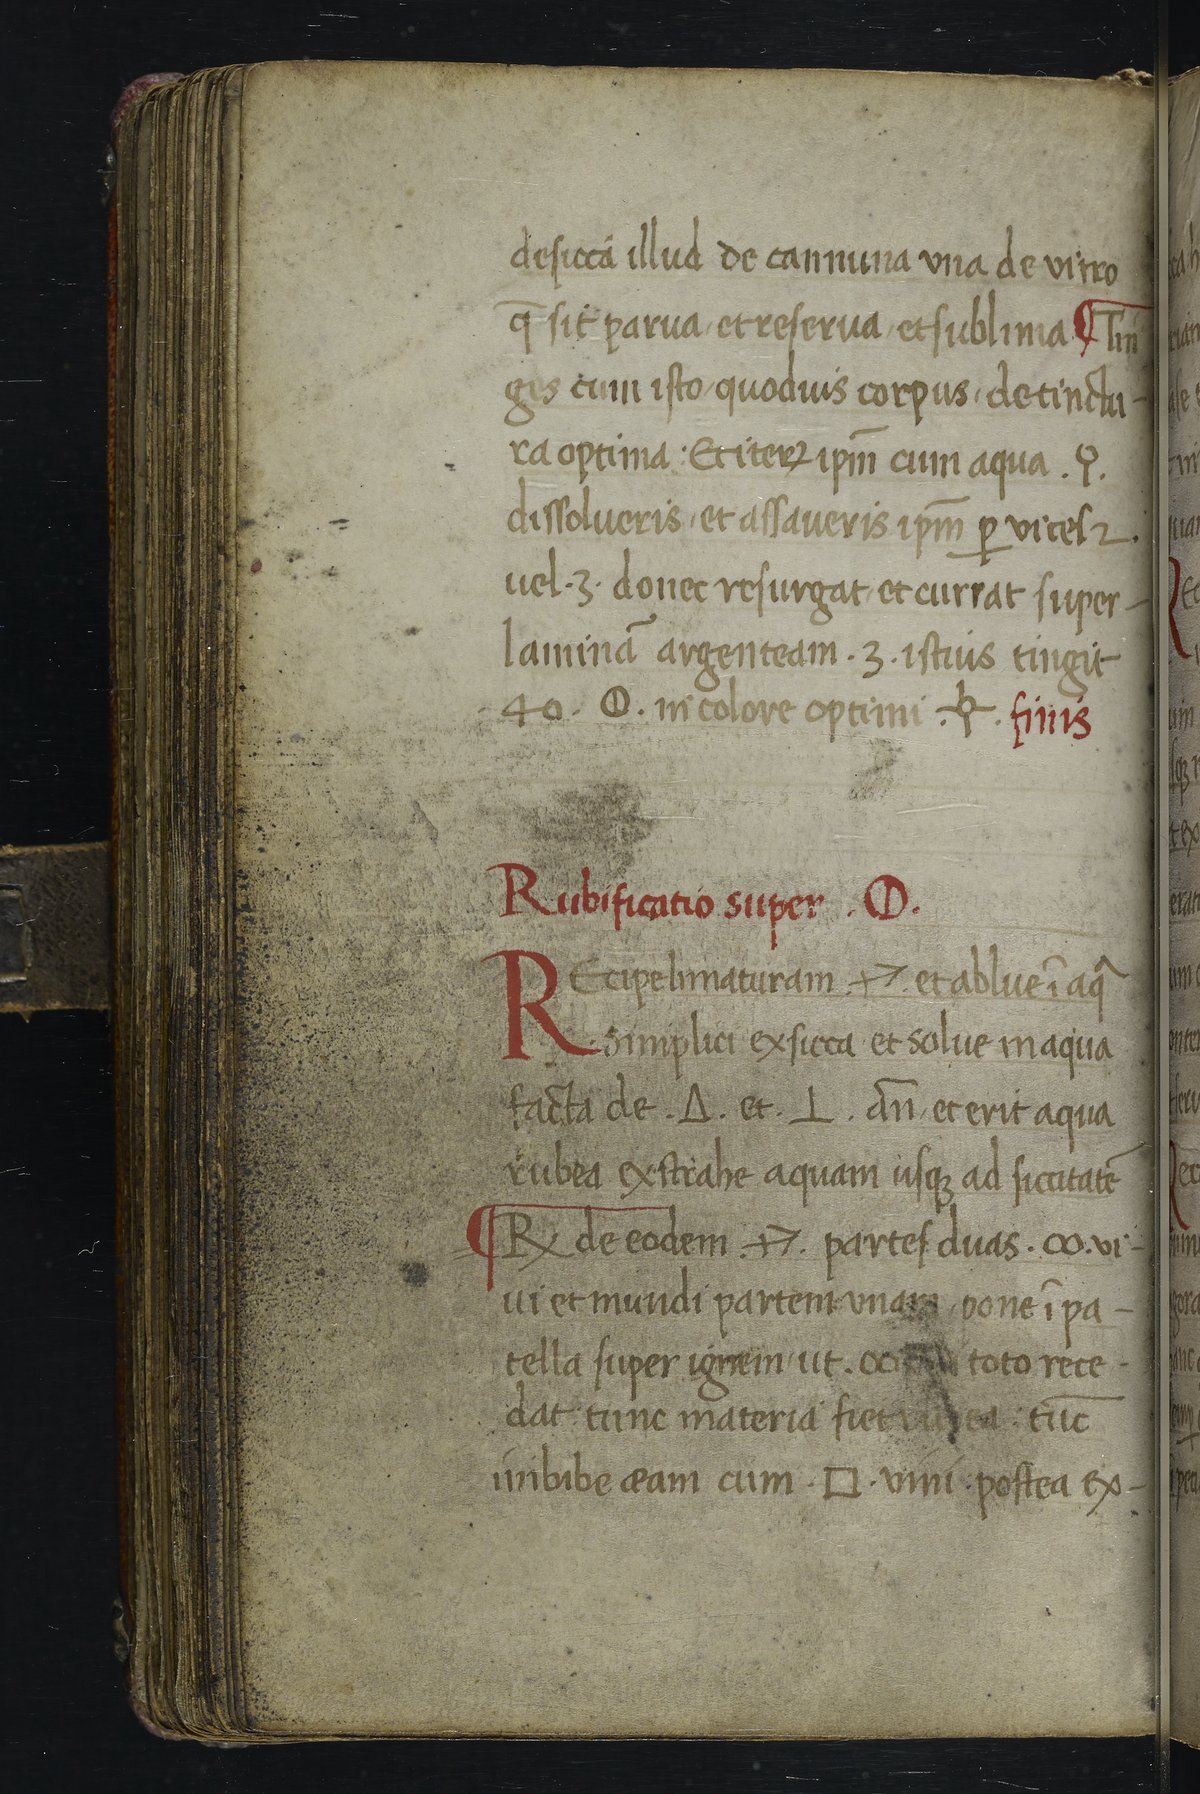 desiccā illud de cannuna vna de vitro
q̄ sit parua, et reserua, et sublima ¶ Tin
ges cum isto, quoduis corpus, de tinctu-
ra optima: Et iterꝝ ipm̄ cum aqua . ☿.
dissolueris, et assaueris ipm̄ ꝑ vices 2.
uel · 3 · donec resurgat, et currat super-
laminā argenteam · 3 · istius tingit
40 · ⦶ · in colore optimi · · finis
Rubificatio super . ⦶.
REcipe limaturam . . et ablue ī aq̄
simplici exsicca et solue in aqua
facta de . Δ . et . ⊥ . an̄, et erit aqua
rubea exstrahe aquam usqꝫ ad siccitatē
¶ ℞ de eodem . . partes duas . ∞ . vi-
ui et mundi partem vnam, pone ī pa-
tella super ignem, ut . ∞ toto rece-
dat tunc materia fiet tūc
inbibe eam cum · □ · vini · postea ex-